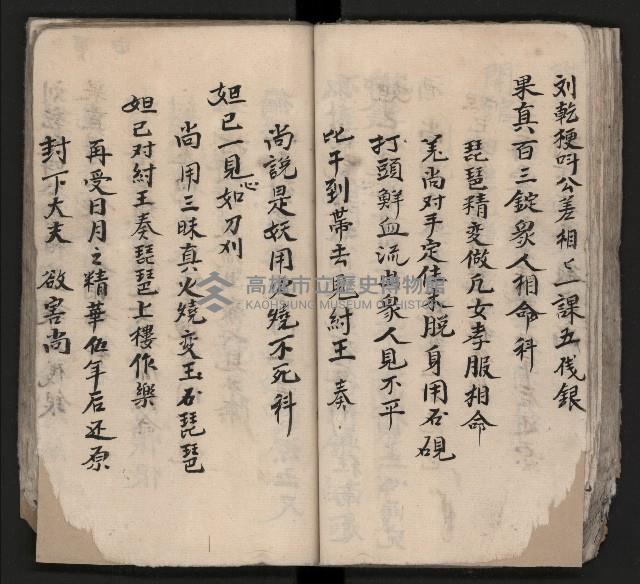 刘乾梗呌公差相〻一課五伐銀
果真百三錠眾人相命科
琵琶精変做凢女孝服相命
羌尚对手定佳不脱身用石硯
打頭鮮血流出衆人見不平
比干到帶去見紂王 奏
尚說是妖用火燒不死科
妲己一見心如刀刈
尚用三昧真火燒变玉石琵琶
妲己对紂王奏琵琶上樓作樂
再受日月之精華伍年后还原
封下大夫 欲害尚
高雄市立歷史博物館
KAOHSIUNG MUSEUM OF HISTORY